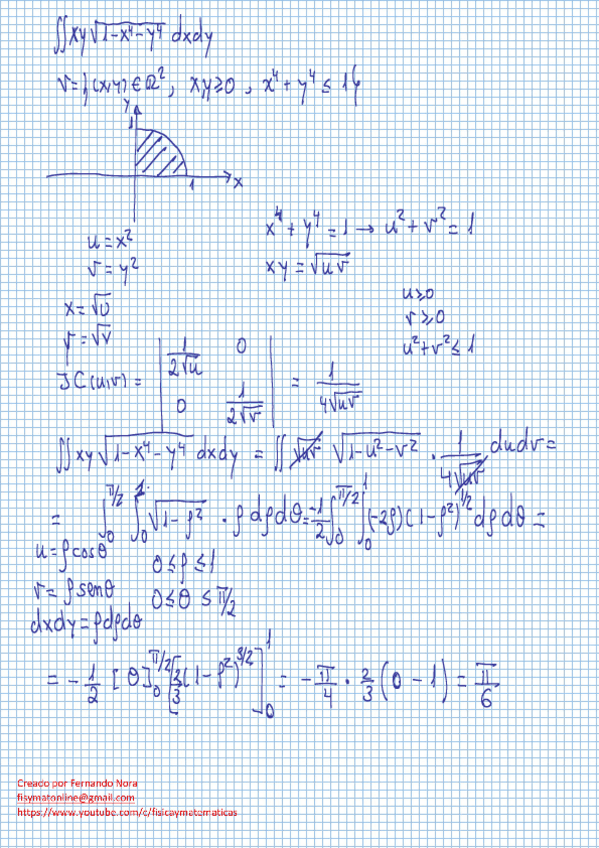 ∬xy√(1-x⁴-y⁴) dxdy
V={(x,y)∈ℝ², x,y≥0, x⁴+y⁴≤1}
y
1
x
1
u=x²
v=y²
x⁴+y⁴=1→u²+v²=1
xy=√(uv)
x=√u
y=√v
u≥0
v≥0
u²+v²≤1
J(u,v)= | 1/(2√u) 0 ; 0 1/(2√v) | = 1/(4√(uv))
∬xy√(1-x⁴-y⁴) dxdy = ∬ √(uv) √(1-u²-v²) · 1/(4√(uv)) dudv=
= ∫₀^(π/2) ∫₀^1 √(1-ρ²) · ρdρdθ=-1/2∫₀^(π/2)∫₀^1(-2ρ)(1-ρ²)^(1/2)dρdθ=
u=ρcosθ
v=ρsenθ
dxdy=ρdρdθ
0≤ρ≤1
0≤θ≤π/2
= -1/2 [θ]₀^(π/2)[2/3(1-ρ²)^(3/2)]₀^1 = -π/4 · 2/3(0-1)=π/6
Creado por Fernando Nora
fisymatonline@gmail.com
https://www.youtube.com/c/fisicaymatematicas